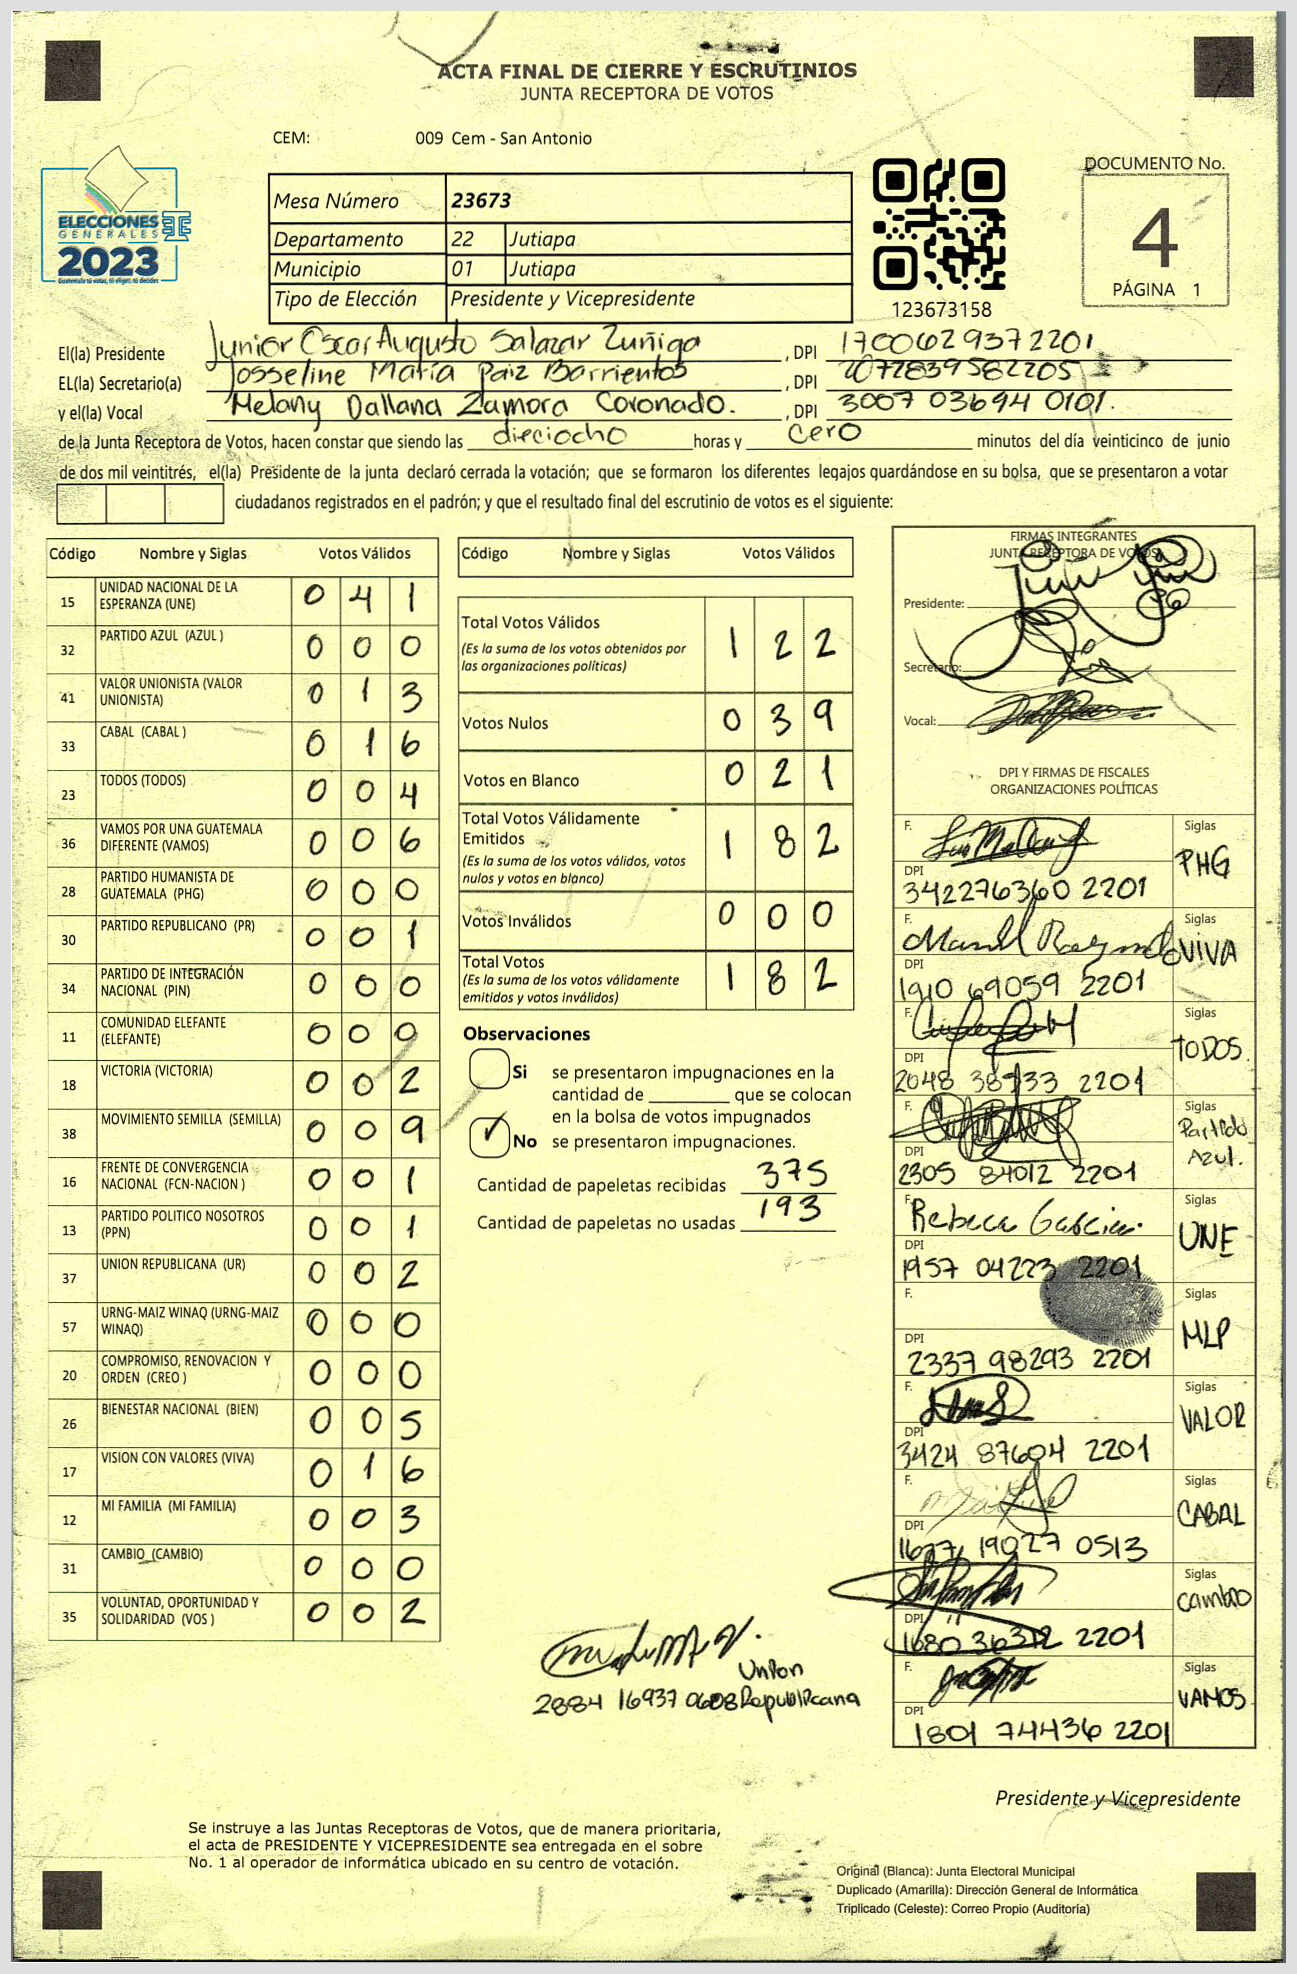 ACTA FINAL DE CIERRE Y ESCRUTINIOS
JUNTA RECEPTORA DE VOTOS
CEM: 009 Cem - San Antonio
ELECCIONES
GENERALES
2023
Guatemala tú votas, tú eliges, tú decides
Mesa Número 23673
Departamento 22 Jutiapa
Municipio 01 Jutiapa
Tipo de Elección Presidente y Vicepresidente
123673158
DOCUMENTO No.
4
PÁGINA 1
El(la) Presidente Junior Oscar Augusto Salazar Zuñiga , DPI 1700629372201
EL(la) Secretario(a) Josseline María Paiz Barrientos , DPI 2072839582205
y el(la) Vocal Melany Dallana Zamora Coronado. , DPI 3007 03694 0101.
de la Junta Receptora de Votos, hacen constar que siendo las dieciocho horas y cero minutos del día veinticinco de junio
de dos mil veintitrés, el(la) Presidente de la junta declaró cerrada la votación; que se formaron los diferentes legajos guardándose en su bolsa, que se presentaron a votar
ciudadanos registrados en el padrón; y que el resultado final del escrutinio de votos es el siguiente:
Código Nombre y Siglas Votos Válidos
15 UNIDAD NACIONAL DE LA ESPERANZA (UNE) 0 4 1
32 PARTIDO AZUL (AZUL ) 0 0 0
41 VALOR UNIONISTA (VALOR UNIONISTA) 0 1 3
33 CABAL (CABAL ) 0 1 6
23 TODOS (TODOS) 0 0 4
36 VAMOS POR UNA GUATEMALA DIFERENTE (VAMOS) 0 0 6
28 PARTIDO HUMANISTA DE GUATEMALA (PHG) 0 0 0
30 PARTIDO REPUBLICANO (PR) 0 0 1
34 PARTIDO DE INTEGRACIÓN NACIONAL (PIN) 0 0 0
11 COMUNIDAD ELEFANTE (ELEFANTE) 0 0 0
18 VICTORIA (VICTORIA) 0 0 2
38 MOVIMIENTO SEMILLA (SEMILLA) 0 0 9
16 FRENTE DE CONVERGENCIA NACIONAL (FCN-NACION ) 0 0 1
13 PARTIDO POLITICO NOSOTROS (PPN) 0 0 1
37 UNION REPUBLICANA (UR) 0 0 2
57 URNG-MAIZ WINAQ (URNG-MAIZ WINAQ) 0 0 0
20 COMPROMISO, RENOVACION Y ORDEN (CREO ) 0 0 0
26 BIENESTAR NACIONAL (BIEN) 0 0 5
17 VISION CON VALORES (VIVA) 0 1 6
12 MI FAMILIA (MI FAMILIA) 0 0 3
31 CAMBIO (CAMBIO) 0 0 0
35 VOLUNTAD, OPORTUNIDAD Y SOLIDARIDAD (VOS ) 0 0 2
Código Nombre y Siglas Votos Válidos
Total Votos Válidos 1 2 2
(Es la suma de los votos obtenidos por
las organizaciones políticas)
Votos Nulos 0 3 9
Votos en Blanco 0 2 1
Total Votos Válidamente
Emitidos 1 8 2
(Es la suma de los votos válidos, votos
nulos y votos en blanco)
Votos Inválidos 0 0 0
Total Votos 1 8 2
(Es la suma de los votos válidamente
emitidos y votos inválidos)
Observaciones
Si se presentaron impugnaciones en la
cantidad de ________ que se colocan
en la bolsa de votos impugnados
✓ No se presentaron impugnaciones.
Cantidad de papeletas recibidas 375
Cantidad de papeletas no usadas 193
Union
2884 16937 0608 Republicana
FIRMAS INTEGRANTES
JUNTA RECEPTORA DE VOTOS
Presidente:
Secretario:
Vocal:
DPI Y FIRMAS DE FISCALES
ORGANIZACIONES POLÍTICAS
F. Siglas PHG
DPI 342276360 2201
F. Siglas VIVA
DPI 1910 69059 2201
F. Siglas TODOS.
DPI 2048 38733 2201
F. Siglas Partido Azul.
DPI 2305 84012 2201
F. Rebeca Garcia. Siglas UNE
DPI 1957 04223 2201
F. Siglas MLP
DPI 2337 98293 2201
F. Siglas VALOR
DPI 3424 87604 2201
F. Siglas CABAL
DPI 1677 19027 0513
F. Siglas Cambio
DPI 1680 36312 2201
F. Siglas VAMOS
DPI 1801 74436 2201
Presidente y Vicepresidente
Se instruye a las Juntas Receptoras de Votos, que de manera prioritaria,
el acta de PRESIDENTE Y VICEPRESIDENTE sea entregada en el sobre
No. 1 al operador de informática ubicado en su centro de votación.
Original (Blanca): Junta Electoral Municipal
Duplicado (Amarilla): Dirección General de Informática
Triplicado (Celeste): Correo Propio (Auditoría)